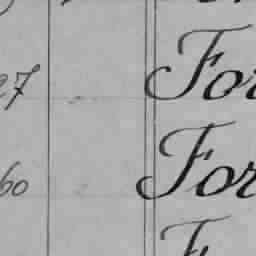 27 For
60 For